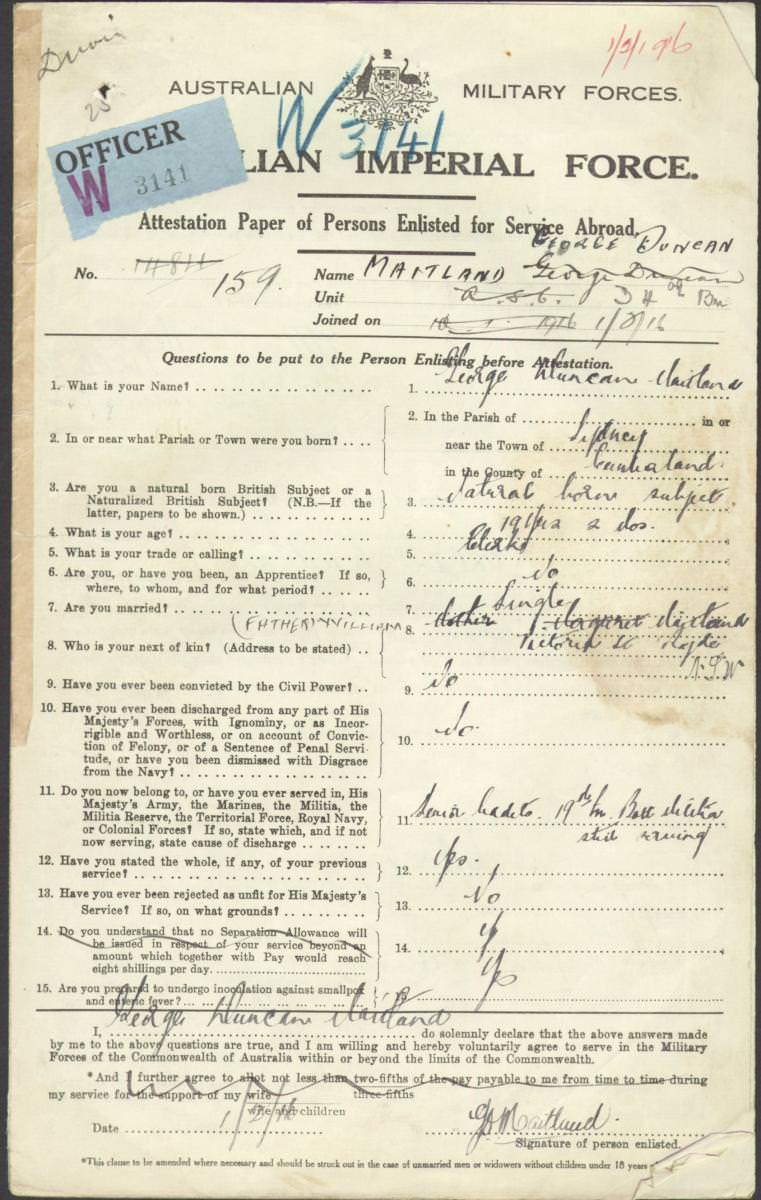 1/2/1916
AUSTRALIAN MILITARY FORCES.
W 3141
OFFICER
W 3141
LIAN IMPERIAL FORCE.
Attestation Paper of Persons Enlisted for Service Abroad.
GEORGE DUNCAN
No. 159. Name MAITLAND George Duncan
Unit 34th Bn
Joined on 1916 1/2/16
Questions to be put to the Person Enlisting before Attestation.
1. What is your Name? 1. George Duncan Maitland
2. In or near what Parish or Town were you born? 2. In the Parish of in or
near the Town of Sydney
in the County of Cumberland
3. Are you a natural born British Subject or a
Naturalized British Subject? (N.B.—If the
latter, papers to be shown.) 3. Natural born subject.
4. What is your age? 4.
5. What is your trade or calling? 5. Clerk
6. Are you, or have you been, an Apprentice? If so,
where, to whom, and for what period? 6. No
7. Are you married? 7. Single
(FATHER) WILLIAM
8. Who is your next of kin? (Address to be stated) 8. Mother Margaret Maitland
Victoria St Ryde
N.S.W
9. Have you ever been convicted by the Civil Power? 9. No
10. Have you ever been discharged from any part of His
Majesty's Forces, with Ignominy, or as Incor-
rigible and Worthless, or on account of Convic-
tion of Felony, or of a Sentence of Penal Servi-
tude, or have you been dismissed with Disgrace
from the Navy? 10. No
11. Do you now belong to, or have you ever served in, His
Majesty's Army, the Marines, the Militia, the
Militia Reserve, the Territorial Force, Royal Navy,
or Colonial Forces? If so, state which, and if not
now serving, state cause of discharge 11. Senior Cadets. 19th Militia
still serving
12. Have you stated the whole, if any, of your previous
service? 12. Yes.
13. Have you ever been rejected as unfit for His Majesty's
Service? If so, on what grounds? 13. No
14. Do you understand that no Separation Allowance will
be issued in respect of your service beyond an
amount which together with Pay would reach
eight shillings per day. 14.
15. Are you prepared to undergo inoculation against smallpox
and enteric fever? Yes
George Duncan Maitland
I, do solemnly declare that the above answers made
by me to the above questions are true, and I am willing and hereby voluntarily agree to serve in the Military
Forces of the Commonwealth of Australia within or beyond the limits of the Commonwealth.
*And I further agree to allot not less than two-fifths of the pay payable to me from time to time during
three-fifths
my service for the support of my wife
wife and children
Date 1/2/16 GDMaitland.
Signature of person enlisted.
*This clause to be amended where necessary and should be struck out in the case of unmarried men or widowers without children under 18 years